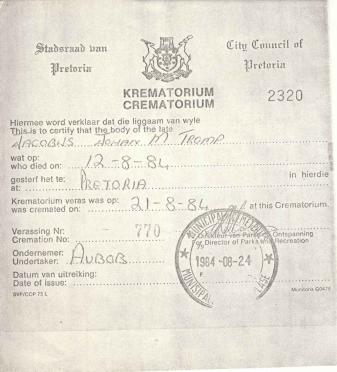 Stadsraad van
Pretoria
City Council of
Pretoria
KREMATORIUM
CREMATORIUM
2320
Hiermee word verklaar dat die liggaam van wyle
This is to certify that the body of the late
JACOBUS JOHAN M TROMP
wat op:
who died on: 12-8-84
gesterf het te: in hierdie
at: PRETORIA
Krematorium veras was op:
was cremated on: 21-8-84 at this Crematorium.
Verassing Nr:
Cremation No: 770
Direkteur van Parke en Ontspanning
for Director of Parks and Recreation
Ondernemer:
Undertaker: AVBOB
Datum van uitreiking:
Date of issue:
1984-08-24
MUNICIPAL
MUNISIPAL
BVP/COP 75 L
Munitoria G0476